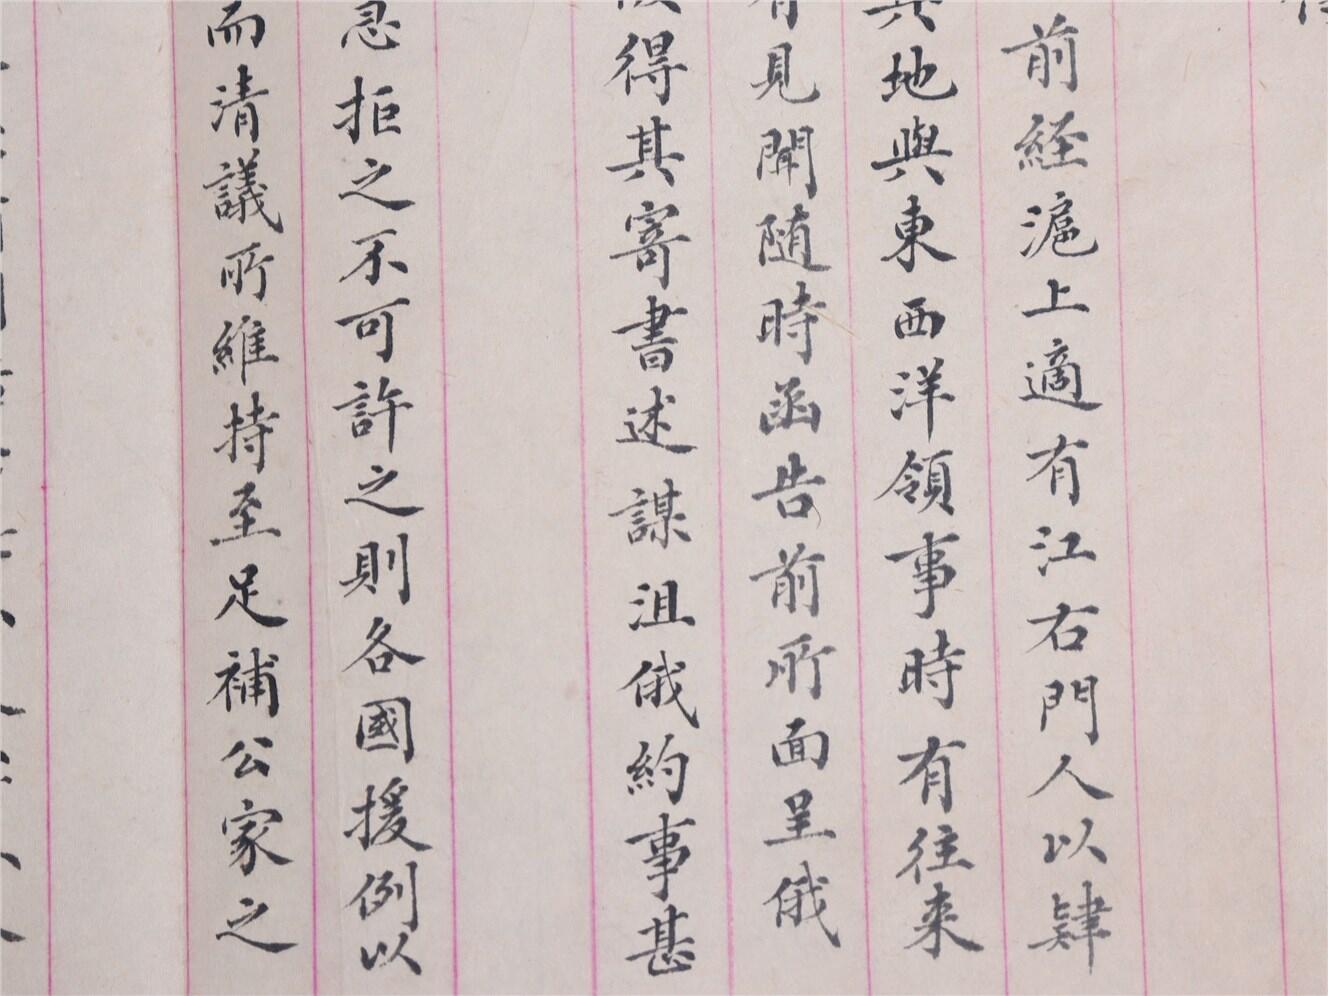 前経滬上適有江右門人以肄
其地與東西洋領事時有往來
有見聞随時函告前所面呈俄
得其寄書述謀沮俄約事甚
忍拒之不可許之則各國援例以
而清議所維持至足補公家之